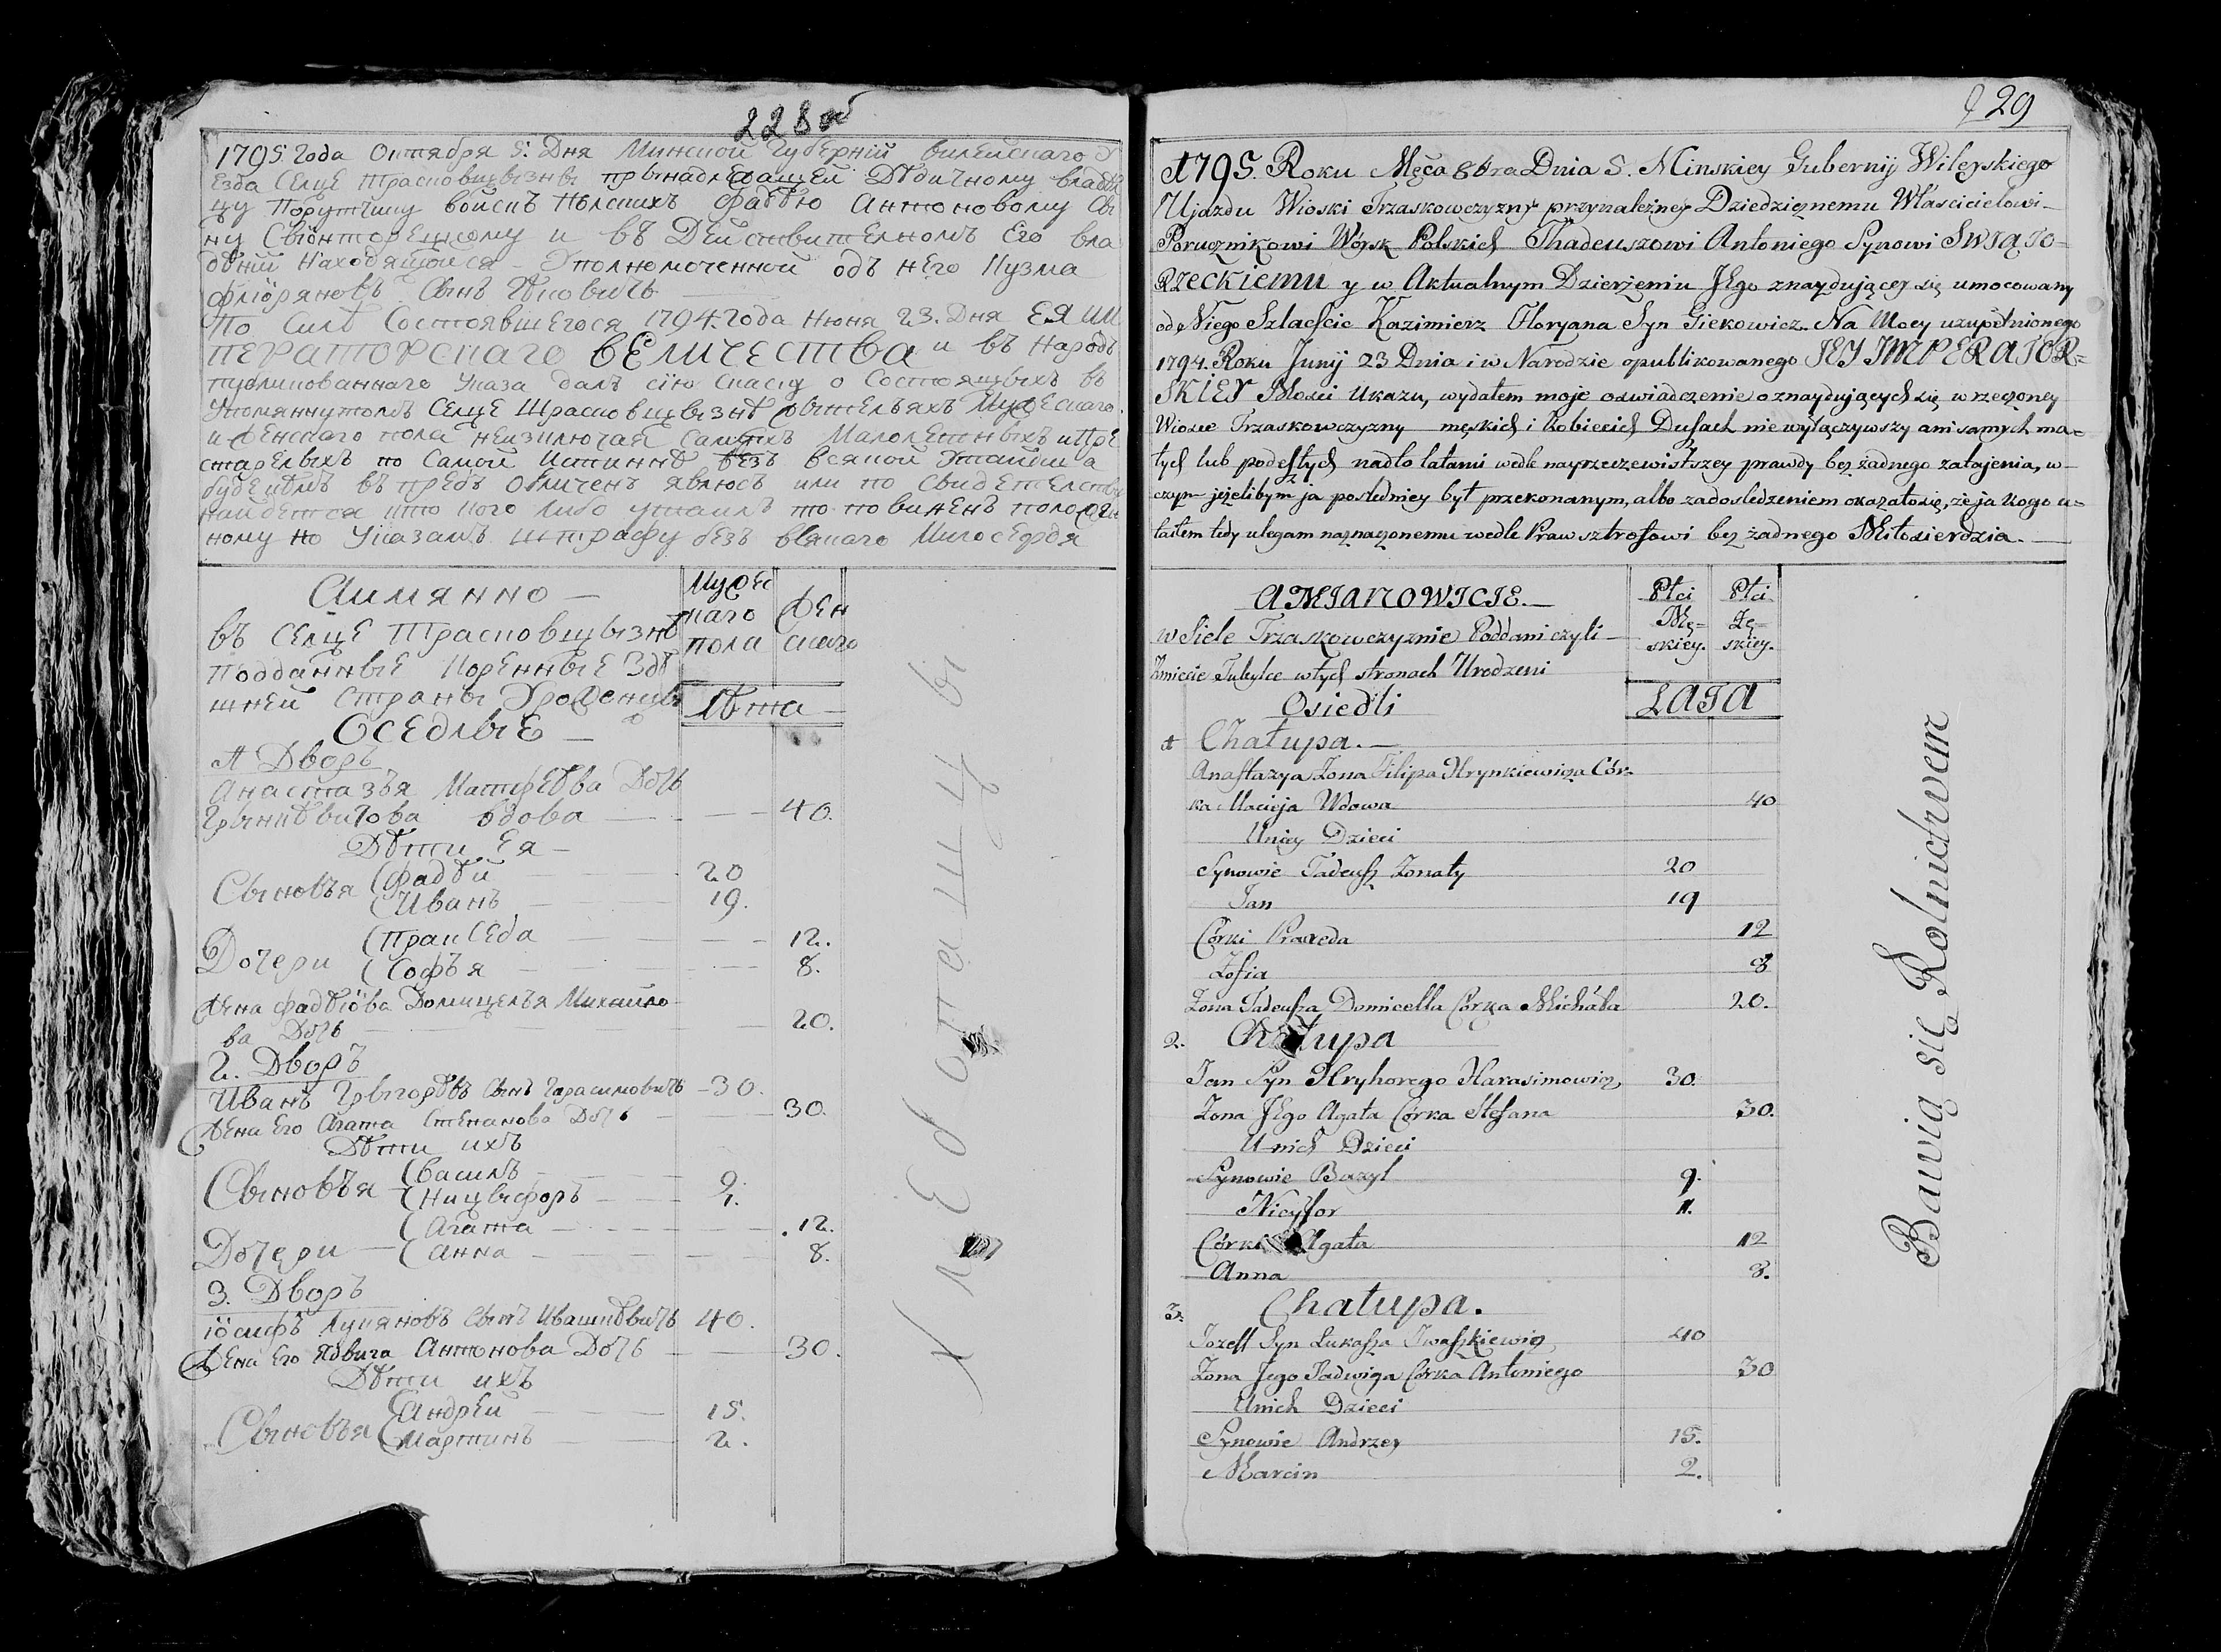 228 об
1795 Года Октября 5. Дня Минской Губернiи Вилейскаго У
езда Селце Трасковщызны прынадлежащей Дѣдичному владѣл
цу Порутчику войскъ Полскихъ Фадѣю Антоновому Сы
ну Свiонторецкому и въ Действителномъ Его вла
дѣнiи Находящойся Уполномоченной одъ него Кузма
Флiоряновъ Сынъ
По Силѣ Состоявшегося 1794. Года Июня 23. Дня ЕЯ ИМ
ПЕРАТОРСКАГО ВЕЛИЧЕСТВА и въ Народъ
публикованнаго Указа далъ сiю Скаску о Состоящыхъ въ
Упомянутомъ Селце Трасковщызнѣ жытеляхъ Мужескаго
и женскаго пола неизключая самыхъ Малолетныхъ и Пре
старелыхъ по Самой Истиннѣ безъ всякой Утайки а
буде кѣмъ въ предъ Обличенъ явлюсь или по Свидетелству
найдется что кого либо утаилъ то повиненъ положе
ному по Указамъ штрафу безъ всякаго Милосердя
Аимянно —
въ Селце Трасковщызнѣ
Подданные Коренные Здѣ
шней Страны Урожены
Оседлые —
Мужес
каго
пола
жен
скаго
Лѣта —
1 Дворъ
Анастазъя Матфеѣва Дочь
Грынкѣвичова вдова — 40.
Дѣти Ея —
Сыновъя (Фадѣй 20
(Иванъ 19.
Дочери (Праксeда 12.
(Софъя 8.
Жена Фадѣiова Домицелъя Михайло
ва Дочь 20.
2. Дворъ
Иванъ Грыгорѣвъ Сынъ Гарасимовичъ — 30.
Жена Его Агата Степанова Дочь 30.
Дѣти ихъ
Сыновъя (Василъ 9.
(Ницыфоръ 1.
Дочери (Агата 12.
(Анна 8.
3. Дворъ
Iосифъ Лукяновъ Сынъ Ивашкѣвичъ 40.
Жена Его Ядвига Антонова Дочь 30.
Дѣти ихъ
Сыновъя (Андрей 15.
(Мартинъ 2.
Хлѣбопашцы
229
1795. Roku Męca 8bra Dnia 5. Minskiey Gubernij Wileyskiego
Ujazdu Wioski Trzaskowczyzny przynależney Dziedzicznemu Włascicielowi
Porucznikowi Woysk Polskich Thadeuszowi Antoniego Synowi SWIĄTO=
RZECKIEMU y w Aktualnym Dzierżeniu JEgo znaydującey się umocowany
od Niego Szlachcic Kazimierz Floryana Syn Giekowicz. Na Mocy uzupełnionego
1794. Roku Junij 23 Dnia i w Narodzie opublikowanego JEY IMPERATOR=
SKIEY Mości Ukazu, wydałem moje oswiadczenie o znaydujących się w rzeczoney
Wiosce Trzaskowczyzny męskich i kobiecich Duszach nie wyłączywszy ani samych ma=
łych lub podeszłych nadto latami wedle nayrzeczewistszey prawdy bez żadnego zatajenia, w
czym jeżelibym ja posledniey był przekonanym, albo zadosledzeniem okazało się, że ja kogo u=
taiłem tedy ulegam naznaczonemu wedle Praw sztrofowi bez żadnego Miłosierdzia.
AMIANOWICIE.
w Siele Trzaskowczyznie Poddani czyli
Kmiecie Tubylce w tych stronach Urodzeni
Osiedli
Płci
Mę=
skiey.
Płci
Żę=
skiey.
LATA
1 Chałupa.
Anastazya Żona Filipa Hrynkiewicza Cór=
ka Macieja Wdowa 40
Uniey Dzieci
Synowie Tadeusz Żonaty 20
Jan 19
Córki Praxeda 12
Zofia 8
Żona Tadeusza Domicella Córka Michała 20.
2. Chałupa
Jan Syn Hryhorego Harasimowicz 30.
Żona JEgo Agata Córka Stefana 30.
Unich Dzieci
Synowie Bazyl 9.
Nicyfor 1.
Córki Agata 12
Anna 8.
3. Chałupa.
Jozeff Syn Łukasza Iwaszkiewicz 40
Żona Jego Jadwiga Córka Antoniego 30
Unich Dzieci
Synowie Andrzey 15.
Marcin 2.
Bawią się Rolnictwem